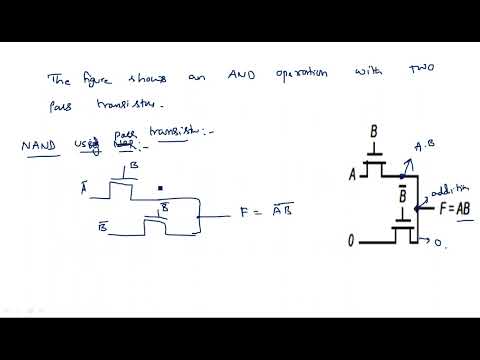 The figure shows an AND operation with TWO
pass transistor.
NAND using pass transistor:-
B
A̅
B̅
B̅
F = A̅B̅
B
A.B
A
B̅
addition
F = AB
0
0.